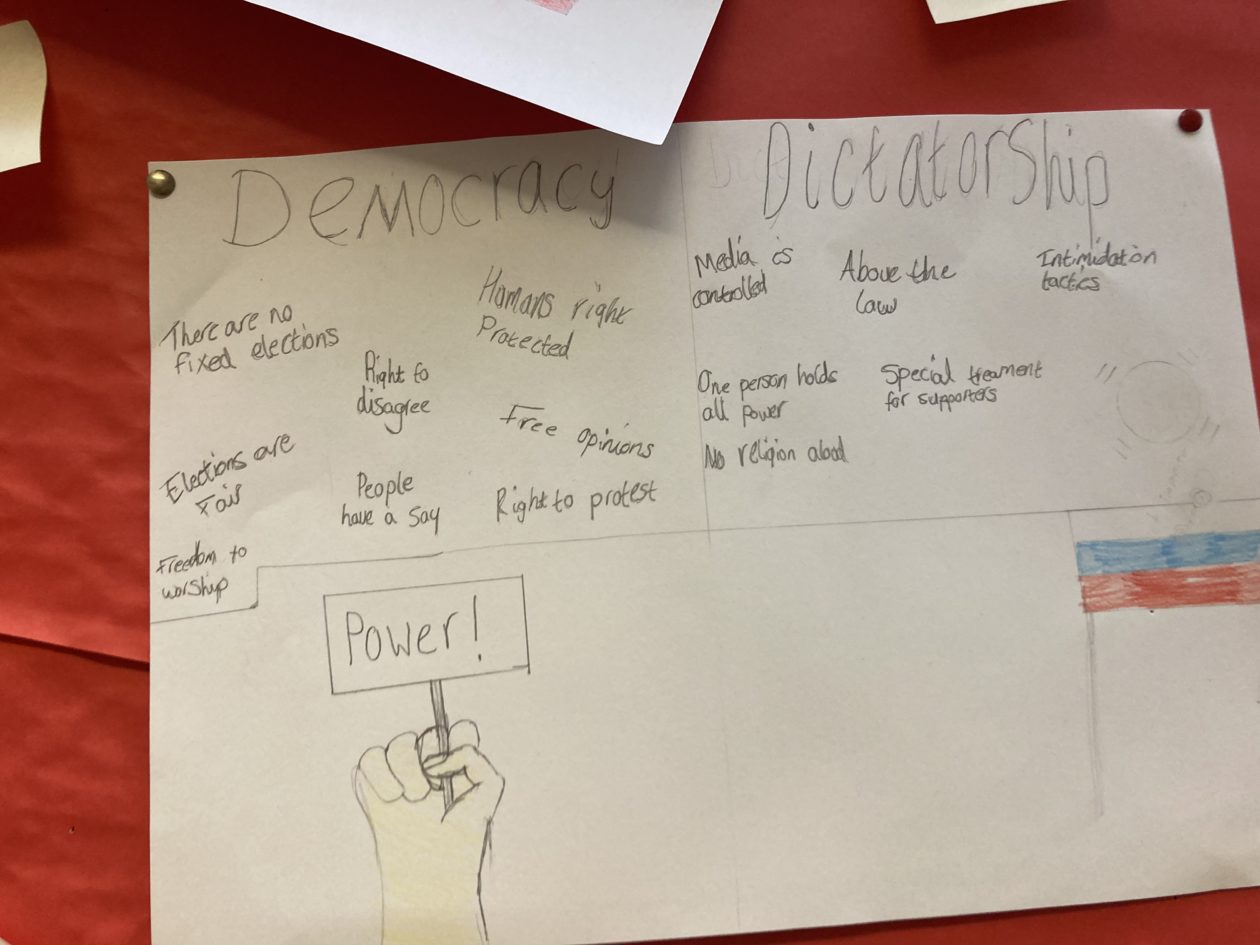 Democracy
There are no
fixed elections
Humans right
Protected
Right to
disagree
Free opinions
Elections are
Fair
People
have a say
Right to protest
Freedom to
worship
Power!
Dictatorship
Media is
controlled
Above the
law
Intimidation
tactics
One person holds
all power
Special treament
for supporters
No religion